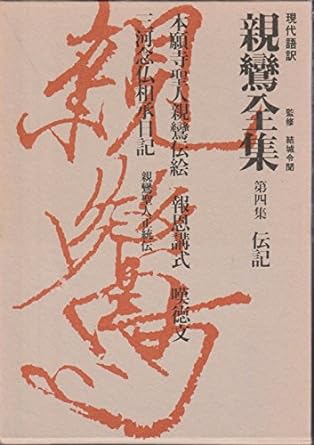 現代語訳
親鸞全集
監修 結城令聞
第四集 伝記
本願寺聖人親鸞伝絵 報恩講式 嘆徳文
三河念仏相承日記 親鸞聖人正統伝
親鸞